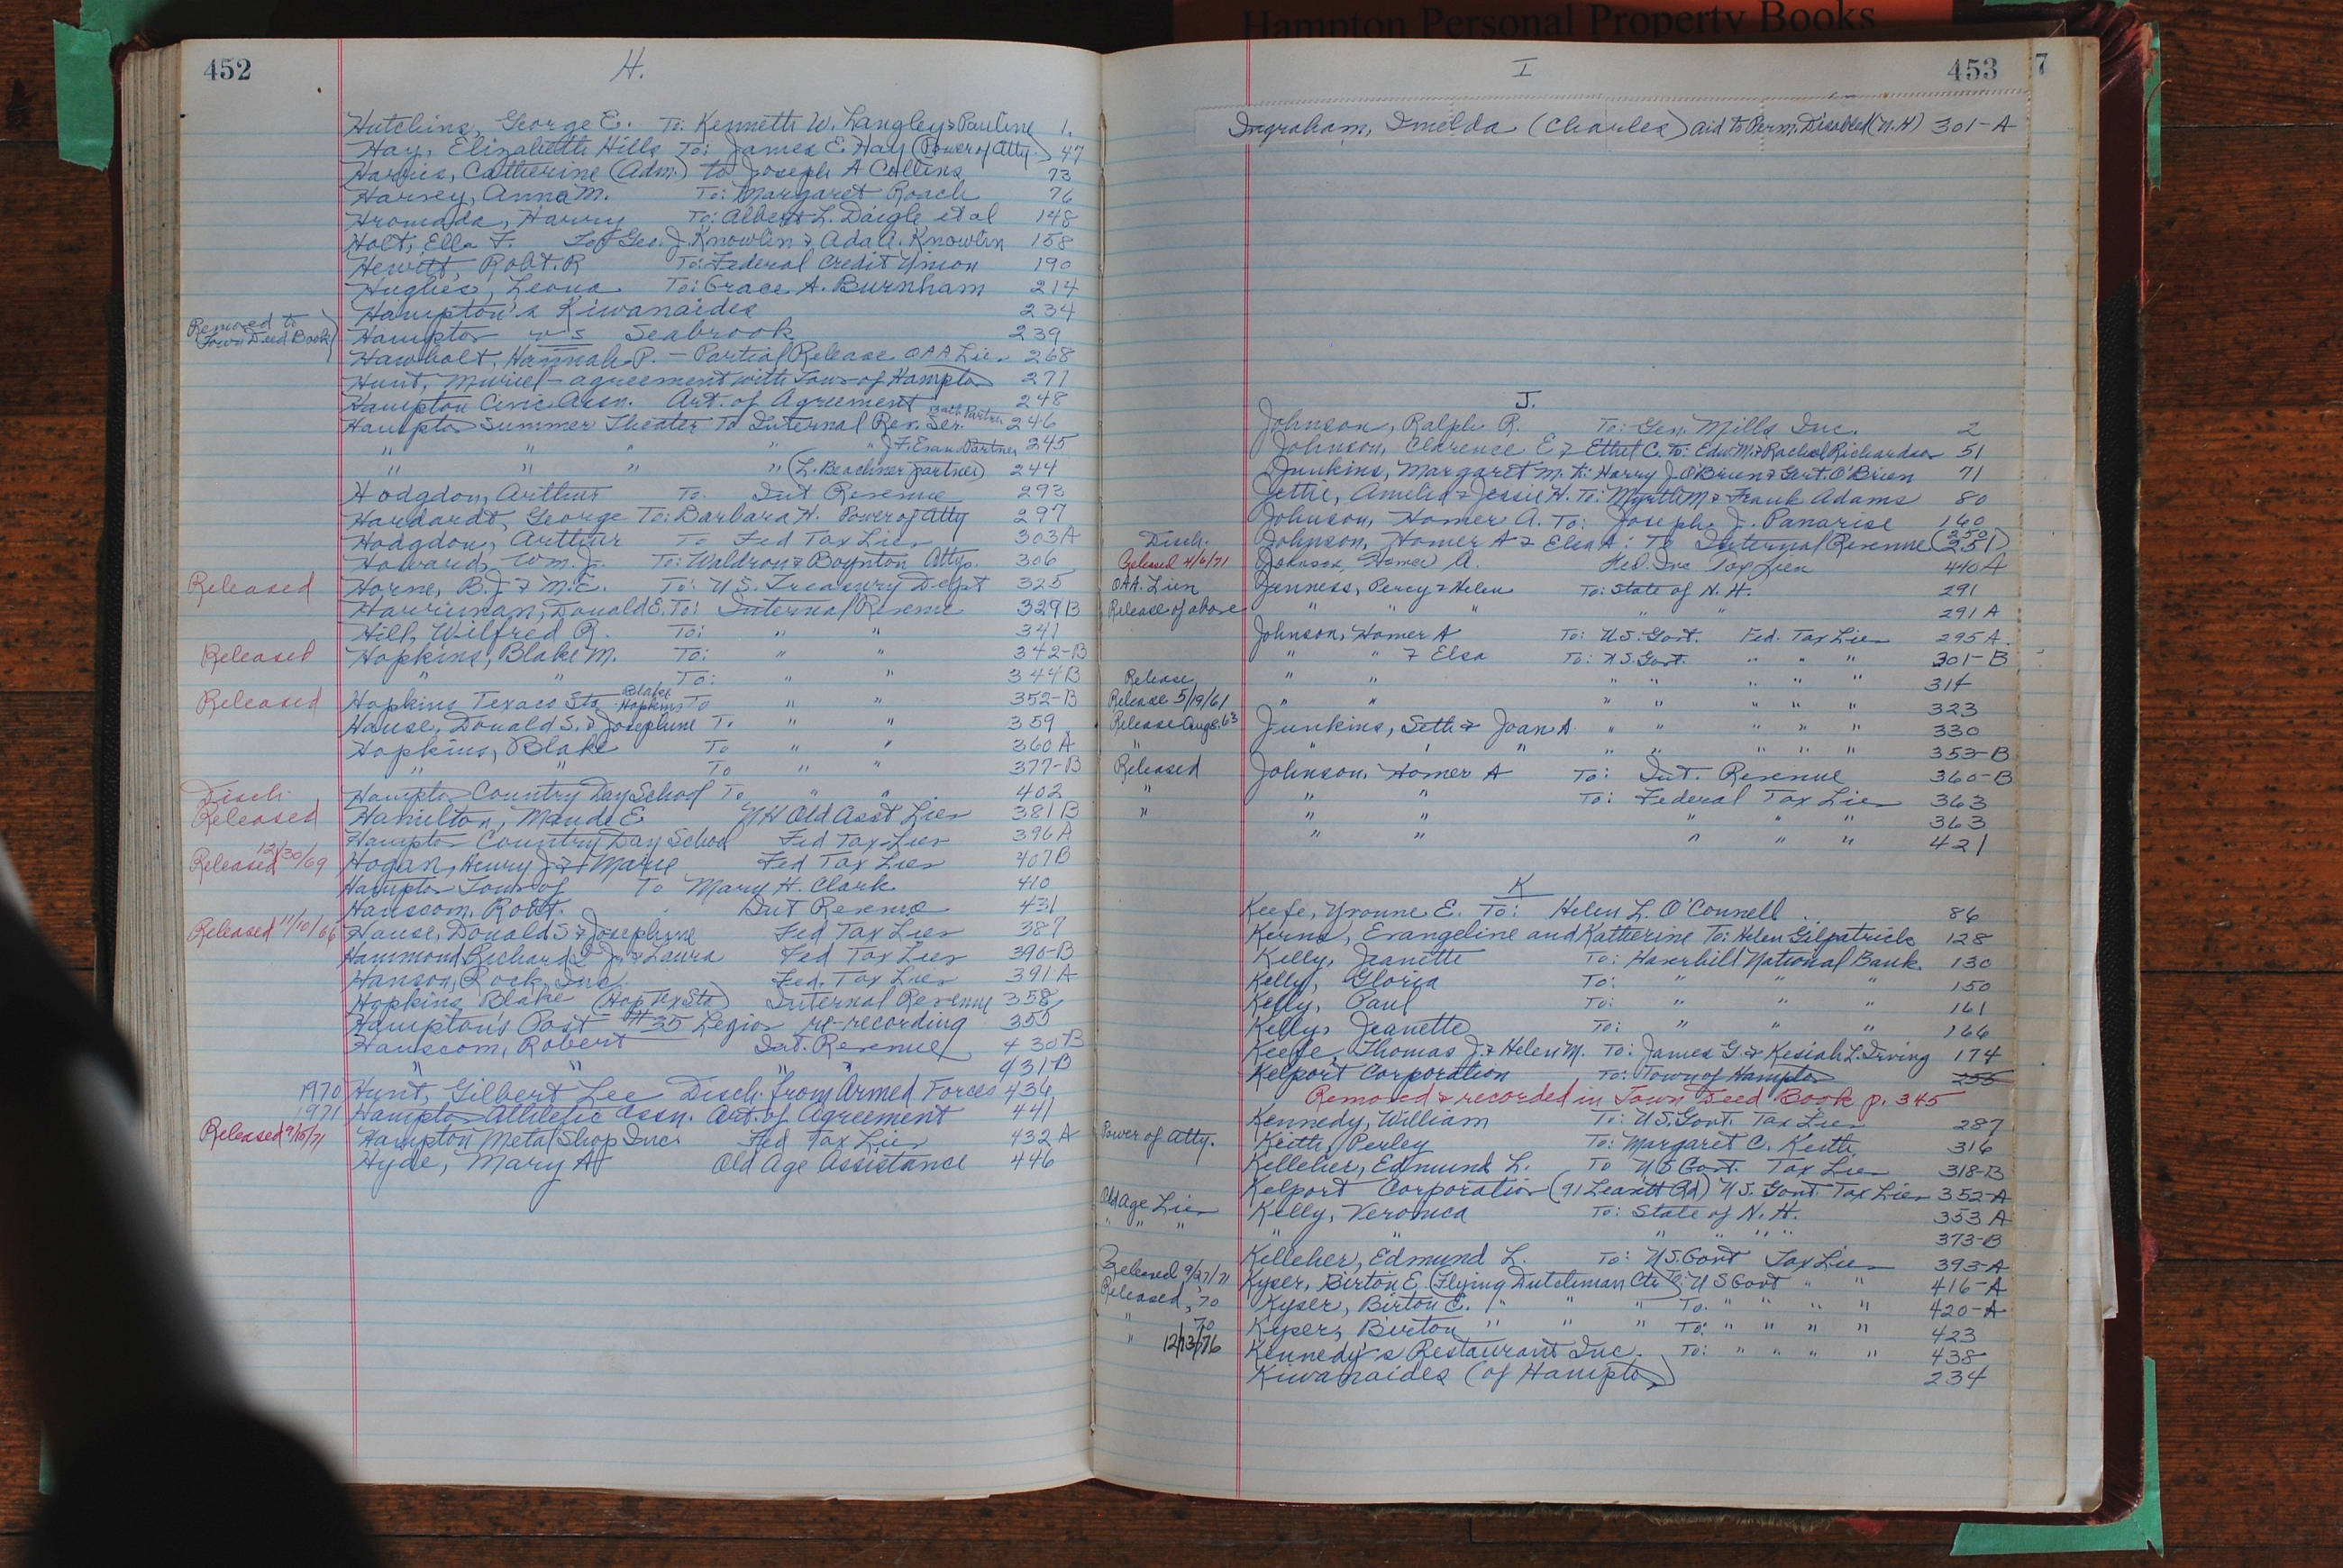 Hampton Personal Property Books
452
H.
Hutchins, George E. To: Kenneth W. Langley & Pauline 1.
Hay, Elizabeth Hills To: James E. Hay (Power of Atty.) 47
Catherine (Adm.) to Joseph A Collins 73
Harvey, Anna M. To: Margaret Roach 76
Hromada, Harry To: Albert L. Daigle et al 148
Holt, Ella F. To: Geo. J. Knowlin & Ada A. Knowlin 158
Hewitt, Robt. R To: Federal Credit Union 190
Hughes, Leona To: Grace A. Burnham 214
Hampton's Kiwanaides 234
Removed to Town Deed Book) Hampton vs Seabrook 239
Hawbolt, Hannah P. - Partial Release OAA Lien 268
Hunt, Muriel - agreement with Town of Hampton 271
Hampton Civic Assn. Art. of Agreement 248
Hampton Summer Theater To Internal Rev. Ser. Partner 246
" " " " J.F. Evans Partner 245
" " " " (L. Beachner partner) 244
Hodgdon, Arthur To. Int Revenue 293
Hardardt, George To: Barbara H. Power of Atty 297
Hodgdon, Arthur To Fed Tax Lien 303A
Howard, Wm. J. To: Waldron & Boynton Attys. 306
Released Horne, B.J. & M.E. To: U.S. Treasury Dept 325
Harriman, Donald E. To: Internal Revenue 329B
Hill, Wilfred R. To: " " 341
Released Hopkins, Blake M. To: " " 342-B
" " To: " " 344B
Released Hopkins Texaco Sta Blake Hopkins To " " 352-B
Hause, Donald S. & Josephine To " " 359
Hopkins, Blake To " " 360A
" " To " " 377-B
Disch. Hampton Country Day School To " " 402
Released Hamilton, Maude E NH Old Asst Lien 381B
Hampton Country Day School Fed Tax Lien 396A
Released 12/30/69 Hogan, Henry J & Marie Fed Tax Lien 407B
Hampton Town of To Mary H. Clark 410
Hanscom, Robt. Int Revenue 431
Released 11/10/66 Hause, Donald S & Josephine Fed Tax Lien 387
Hammond, Richard J. & Laura Fed Tax Lien 390-B
Hanson, Rock, Inc Fed. Tax Lien 391A
Hopkins Blake (Hop Tex Sta) Internal Revenue 358
Hampton's Post #35 Legion re-recording 355
Hanscom, Robert Int. Revenue 430B
" " " " 431B
1970 Hunt, Gilbert Lee Disch. from Armed Forces 436
1971 Hampton Athletic Assn. Art. of Agreement 441
Released 9/15/71 Hampton Metal Shop Inc. Fed Tax Lien 432A
Hyde, Mary A Old Age Assistance 446
453
7
I
Ingraham, Imelda (Charles) Aid to Perm. Disabled (N.H) 301-A
J.
Johnson, Ralph R. To: Gen. Mills Inc. 2
Johnson, Clarence E & Ethel C. To: Edw. M. & Rachel Richardson 51
Junkins, Margaret M. to: Harry J O'Brien & Gert. O'Brien 71
Jettie, Amelia & Jessie H. To: Myrtle M & Frank Adams 80
Johnson, Homer A. To: Joseph J. Panarise 140
Disch. Johnson, Homer A & Elsa A: To Internal Revenue (250 251)
Released 4/6/71 Johnson, Homer A. Fed. Inc Tax Lien 440A
OAA. Lien Jenness, Percy & Helen To: State of N.H. 291
Release of above " " " " " 291A
Johnson, Homer A To: U.S. Govt. Fed. Tax Lien 295A
" " & Elsa To: U.S. Govt. " " " 301-B
Release " " " " " " " 314
Release 5/19/61 " " " " " " " 323
Release Aug 8, 63 Junkins, Seth & Joan A. " " " " " 330
" " " " " " " " " 353-B
Released Johnson, Homer A To: Int. Revenue 360-B
" " " To: Federal Tax Lien 363
" " " " " " 363
" " " " " 421
K
Keefe, Yvonne E. To: Helen L. O'Connell 86
Kerns, Evangeline and Katherine To: Helen Gilpatrick 128
Kelly, Jeanette To: Haverhill National Bank 130
Kelly, Gloria To: " " " 150
Kelly, Paul To: " " " 161
Kelly, Jeanette To: " " " 166
Keefe, Thomas J. & Helen M. To: James G. & Kesiah L. Irving 174
Kelport Corporation To: Town of Hampton 255
Removed & recorded in Town Deed Book p. 345
Kennedy, William To: U.S. Govt. Tax Lien 287
Power of Atty. Keith, Perley To: Margaret C. Keith 316
Kelleher, Edmund L. To US Govt. Tax Lien 318-B
Kelport Corporation (91 Leavitt Rd) U.S. Govt. Tax Lien 352-A
Old Age Lien Kelly, Veronica To: State of N.H. 353A
" " " " " " " " " 373-B
Kelleher, Edmund L. To: US Govt Tax Lien 393-A
Released 9/27/71 Kyser, Birton E (Flying Dutchman Ctr) To: U S Govt " " 416-A
Released, 70 Kyser, Birton E. " " " To: " " " " 420-A
" 70 Kyser, Birton " " " To: " " " " 423
" 12/13/76 Kennedy's Restaurant Inc. To: " " " " 438
Kiwanaides (of Hampton) 234